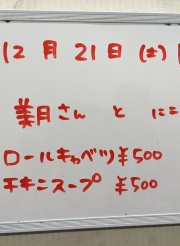 12月21日(土)
美月さん と ニニ
ロールキャベツ¥500
チキンスープ ¥500